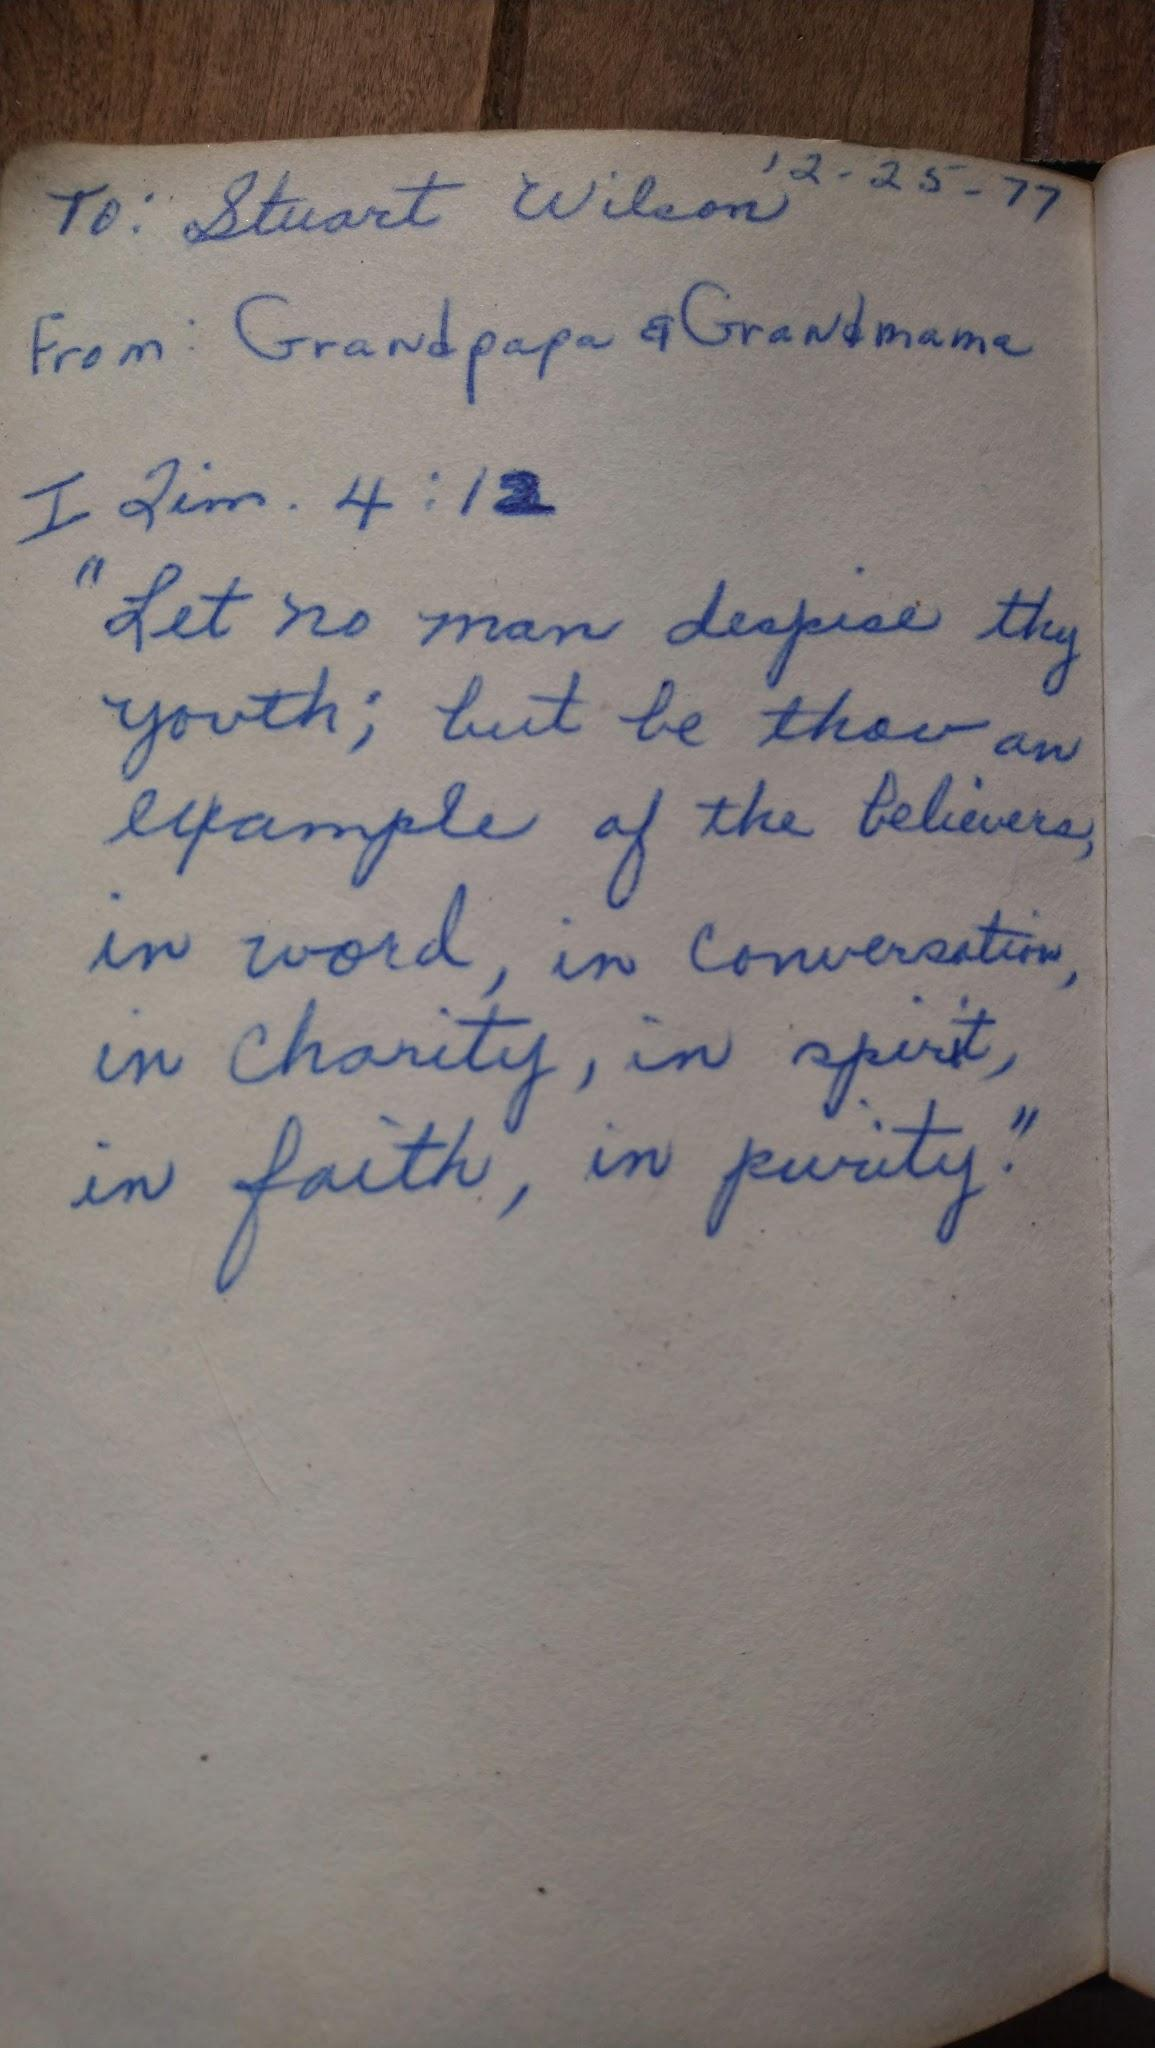 To: Stuart Wilson 12-25-77
From: Grandpapa & Grandmama
I Tim. 4:12
"Let no man despise thy
youth; but be thou an
example of the believers,
in word, in conversation,
in charity, in spirit,
in faith, in purity."